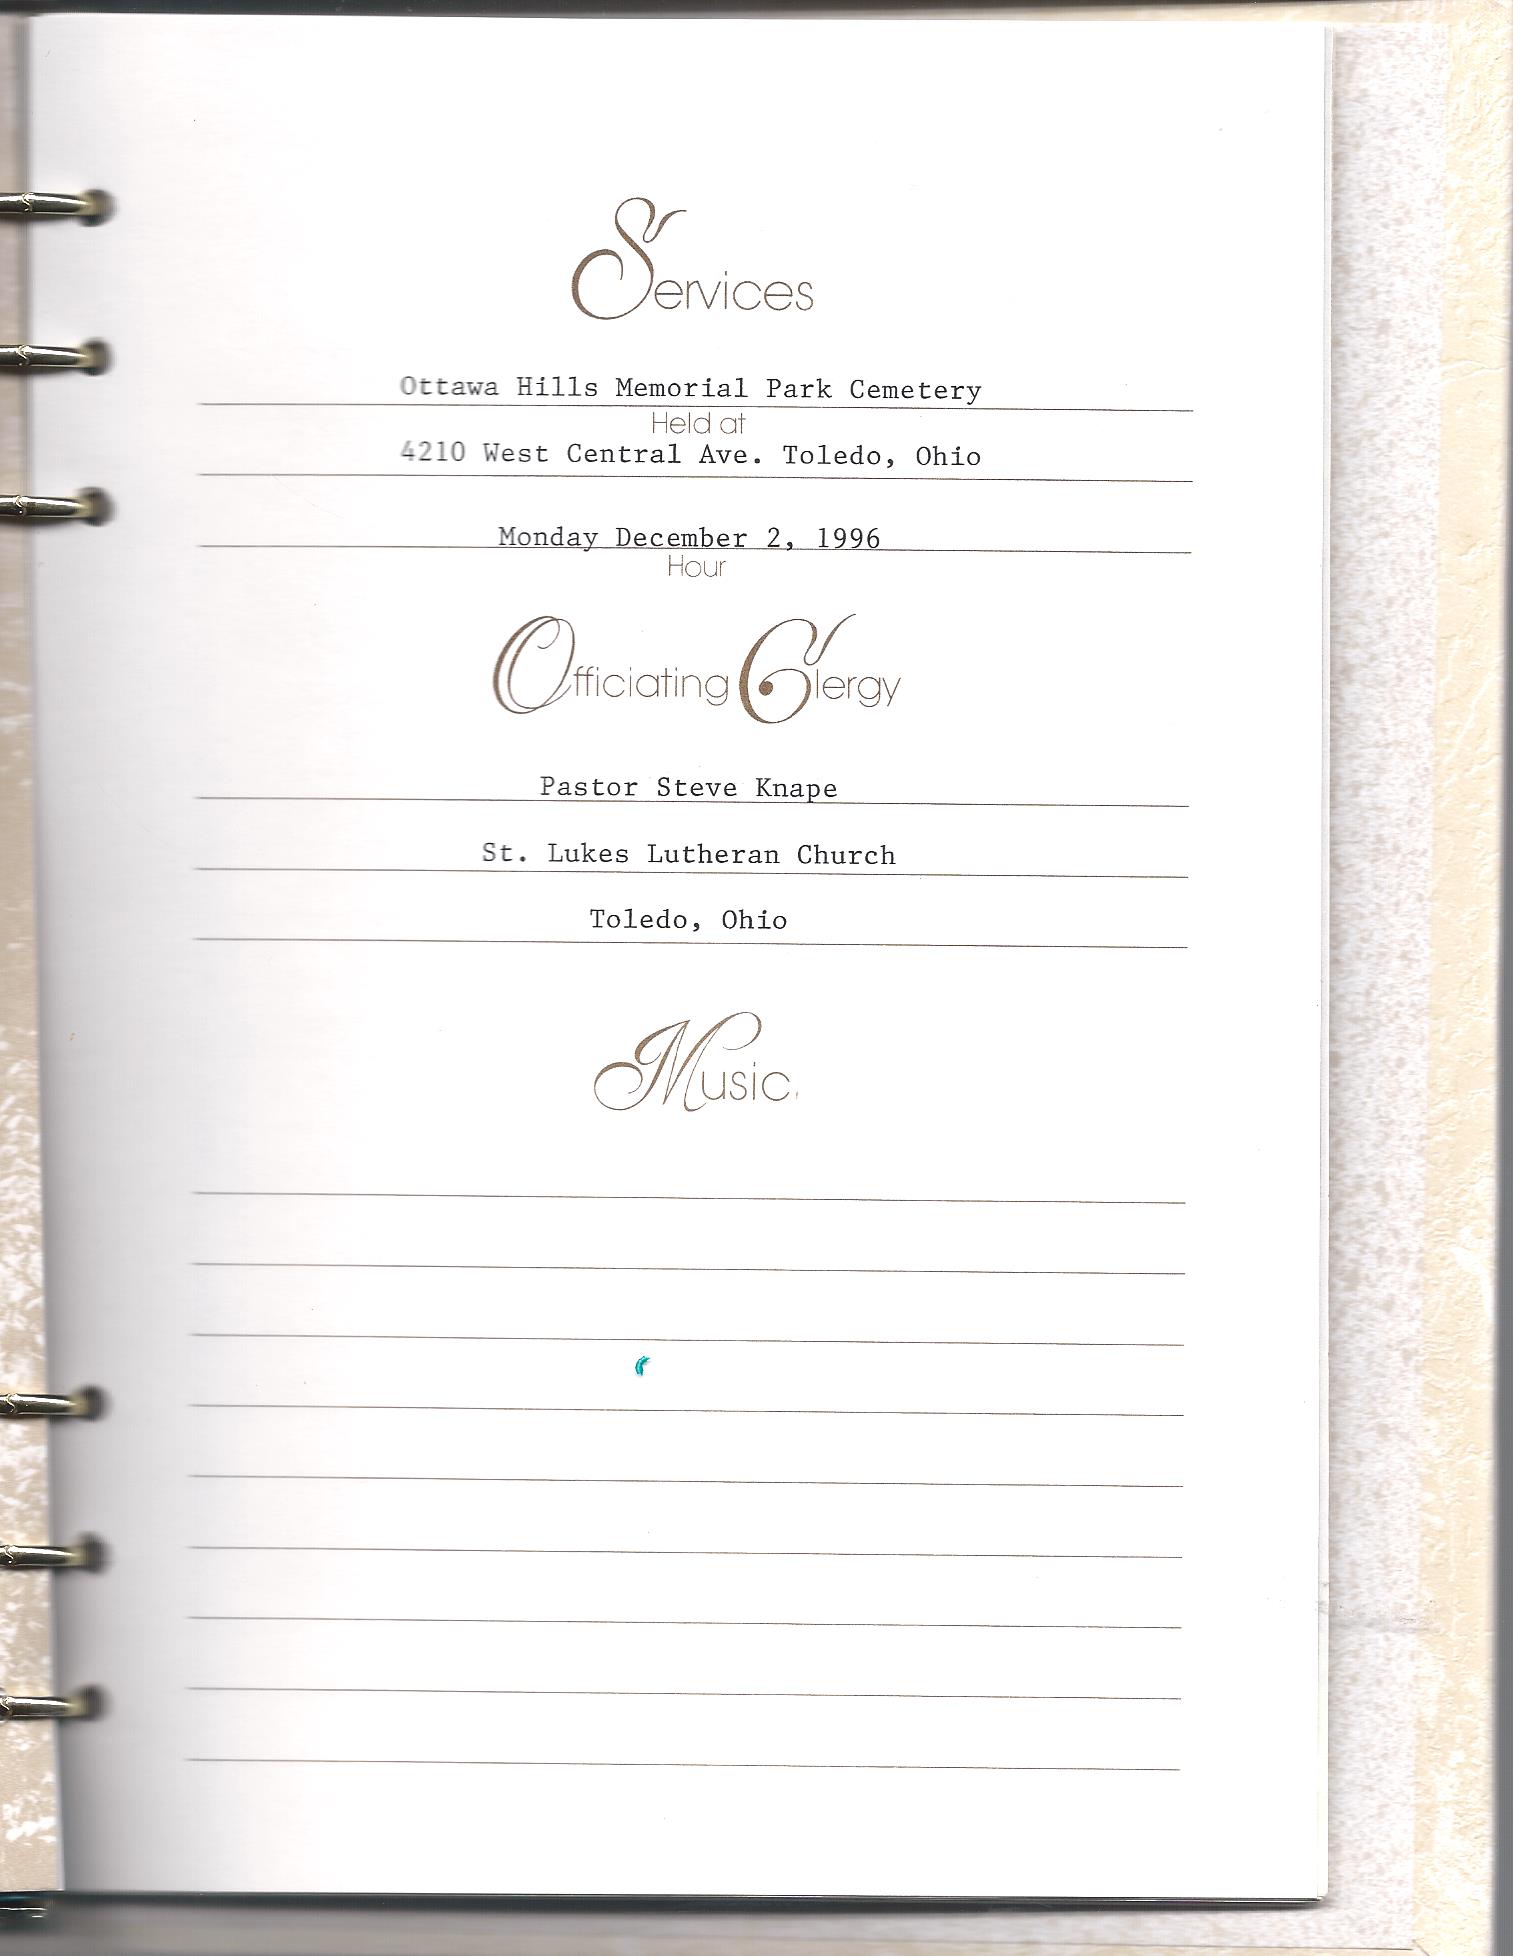 Services
Ottawa Hills Memorial Park Cemetery
Held at
4210 West Central Ave. Toledo, Ohio
Monday December 2, 1996
Hour
Officiating Clergy
Pastor Steve Knape
St. Lukes Lutheran Church
Toledo, Ohio
Music